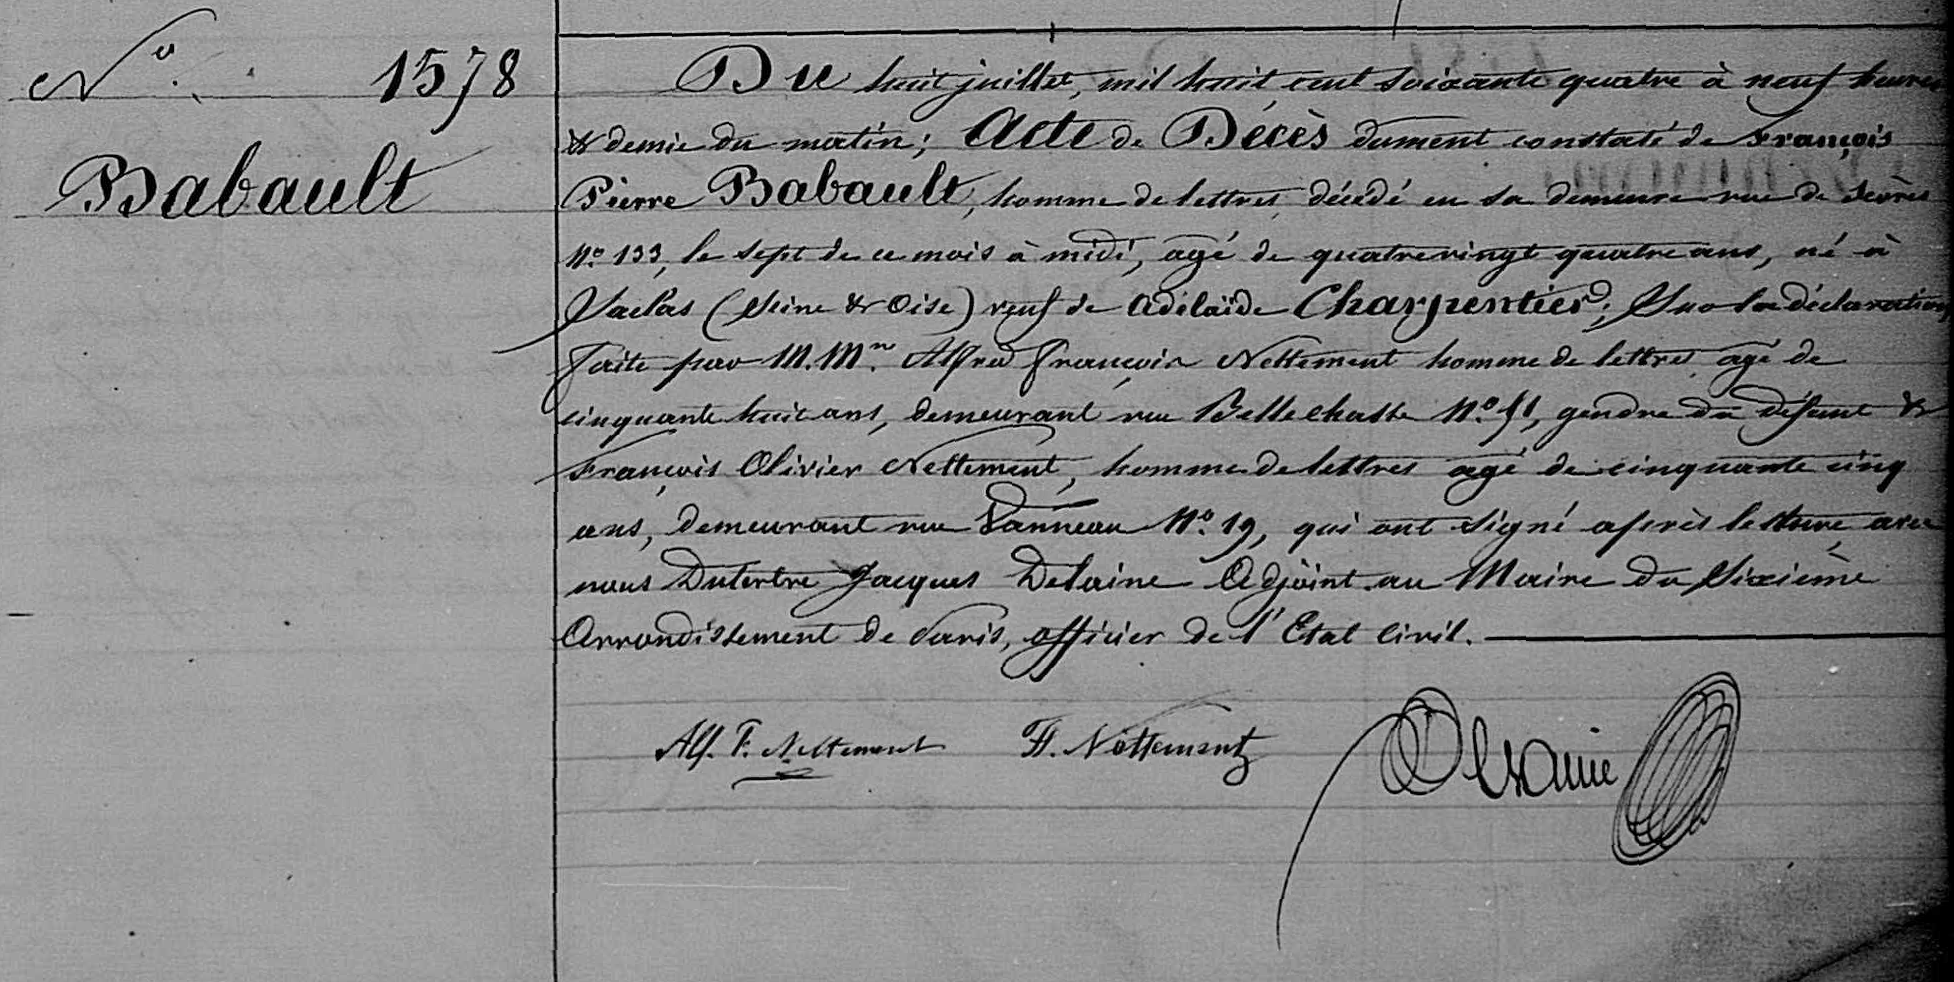 No. 1578
Babault
Du huit juillet, mil huit cent soixante quatre à neuf heures
& demie du matin; Acte de Décès dument constaté de François
Pierre Babault, homme de lettres, décédé en sa demeure rue de Sèvres
No. 133, le sept de ce mois à midi, agé de quatrevingt quatre ans, né à
Saclas (Seine & Oise) veuf de Adélaïde Charpentier; Sur la déclaration
faite par M.Mrs. Alfred François Nettement homme de lettres, agé de
cinquante huit ans, demeurant rue Bellechasse No. 51, gendre du défunt &
François Olivier Nettement, homme de lettres agé de cinquante cinq
ans, demeurant rue Vanneau No. 19, qui ont signé après lecture, avec
nous Dutertre Jacques Delaine Adjoint au Maire du Sixième
Arrondissement de Paris, officier de l'Etat Civil.
Alf. F. Nettement F. Nettement